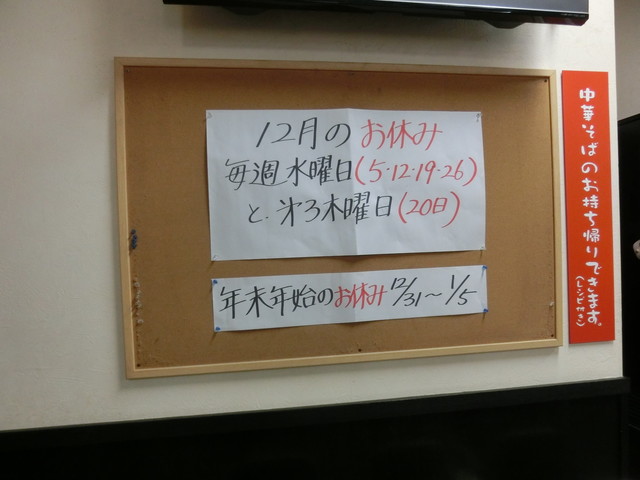 12月のお休み
毎週水曜日(5・12・19・26)
と、第3木曜日(20日)
年末年始のお休み 12/31〜1/5
中華そばのお持ち帰りできます。
(レシピ付き)